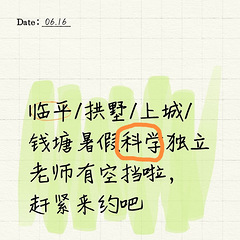 Date: 06.16
临平/拱墅/上城/
钱塘暑假科学独立
老师有空挡啦，
赶紧来约吧